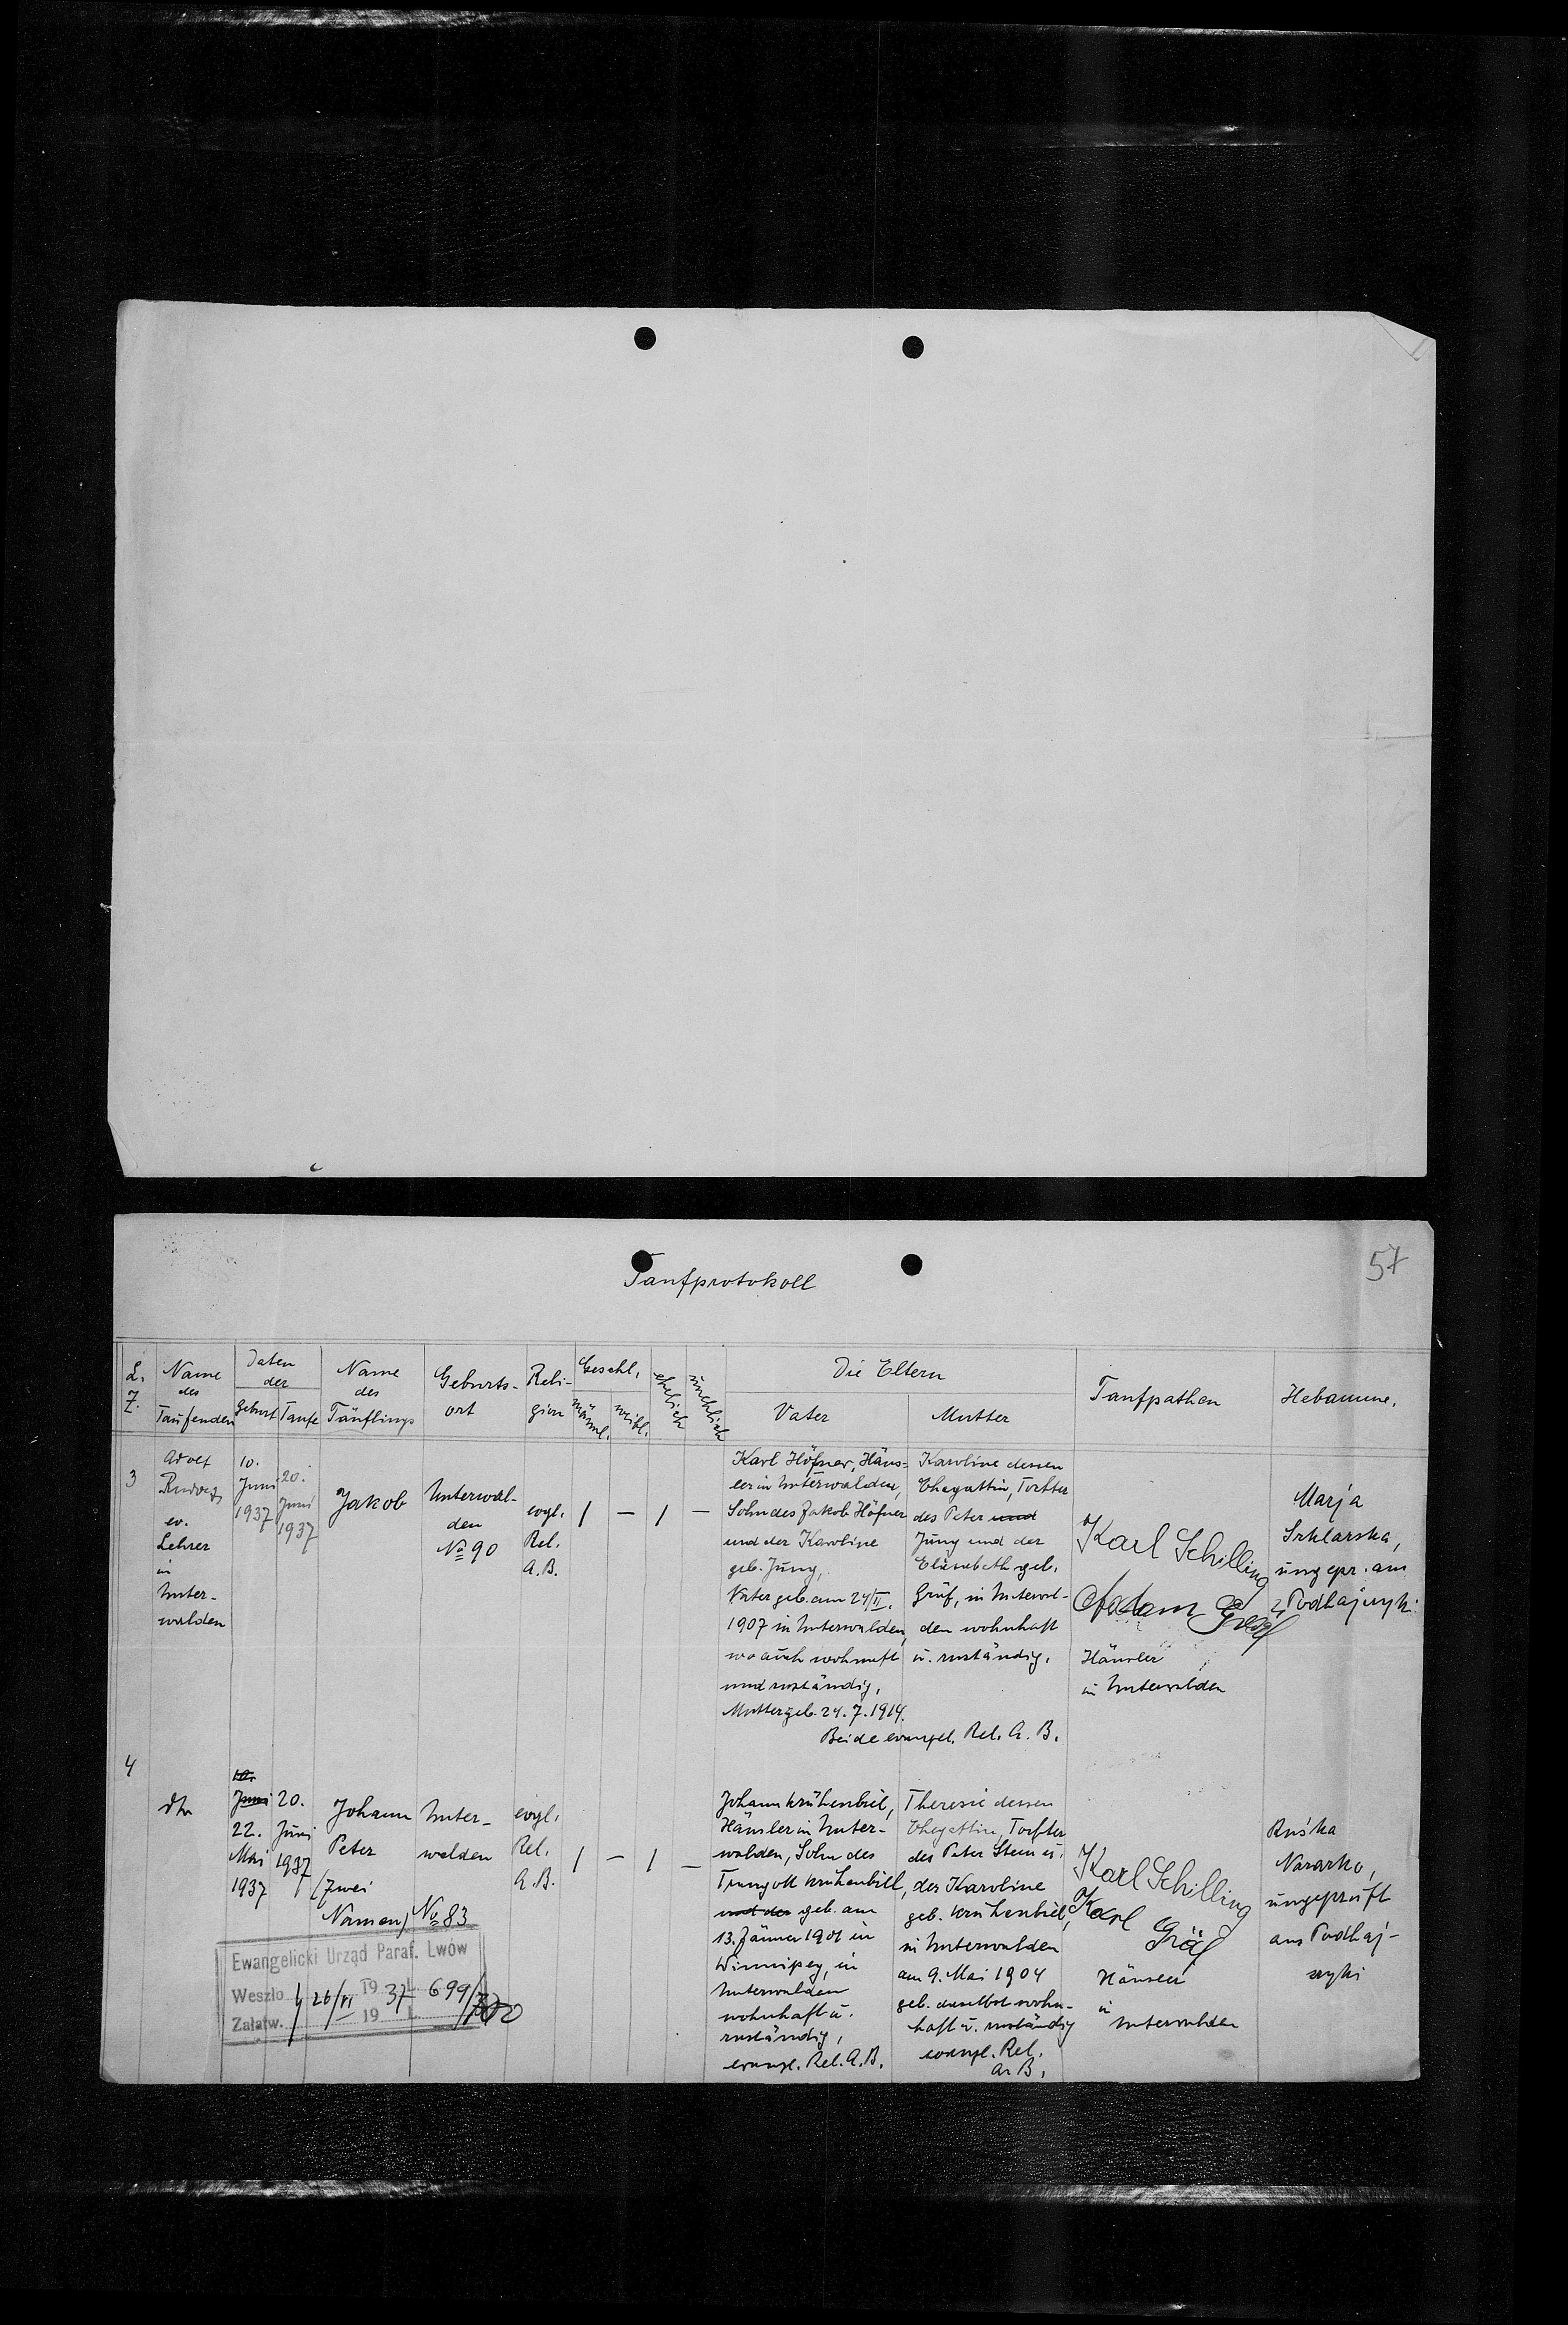 57
Taufprotokoll
L. Z.
Name des Taufenden
Daten der
Geburt
Taufe
Name des Täuflings
Geburts-
ort
Reli-
gion
Geschl.
männl.
weibl.
ehelich
unehelich
Die Eltern
Vater
Mutter
Taufpathen
Hebamme.
3
Adolf
ev.
Lehrer
in
Unter-
walden
10.
Juni
1937
20.
Juni
1937
Jakob
Unterwal-
den
No 90
evgl.
Rel.
A.B.
1
—
1
—
Karl Höfner, Häus-
ler in Unterwalden,
Sohn des Jakob Höfner
und der Karoline
geb. Jung,
Vater geb. am 24/II.
1907 in Unterwalden,
wo auch wohnhaft
und zuständig,
Mutter geb. 24.7.1914.
Karoline dessen
Ehegattin, Tochter
des Peter und
Jung und der
Elisabeth geb.
Gräf, in Unterwal-
den wohnhaft
u. zuständig.
Beide evangel. Rel. A. B.
Karl Schilling
Adam Gräf
Häusler
in Unterwalden
Marja
Szklarska,
ungepr. aus
Podhajczyki
4
dto
10.
Juni
22.
Mai
1937
20.
Juni
1937
Johann
Peter
(Zwei
Namen)
Unter-
walden
No 83
evgl.
Rel.
A.B.
1
—
1
—
Johann Krühenbiel,
Häusler in Unter-
walden, Sohn des
Traugott Krühenbiel,
und der geb. am
13. Jänner 1901 in
Winnipeg, in
Unterwalden
wohnhaft u.
zuständig,
evangl. Rel. A.B.
Theresie dessen
Ehegattin, Tochter
des Peter Stein u.
der Karoline
geb. Krühenbiel,
in Unterwalden
am 9. Mai 1904
geb. daselbst wohn-
haft u. zuständig
evangl. Rel.
A. B.
Karl Schilling
Karl Gräf
Häusler
in
Unterwalden
Ruśka
ungeprüft
aus Podhaj-
czyki
Ewangelicki Urząd Paraf. Lwów
Weszło 26/VI 19 37 L. 699/
Załatw. 19 L. 700